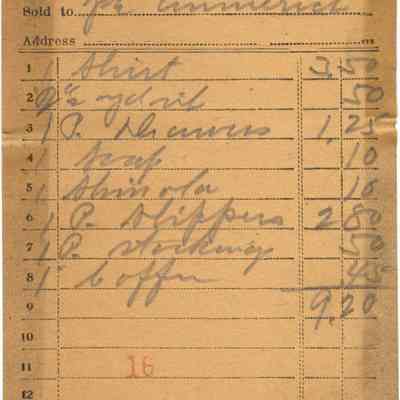 Sold to
Address
1 1 Shirt 3,50
2 yds 50
3 1 P. Drawers 1,25
4 1 soap 10
5 1 Shinola 10
6 1 P. Slippers 2 80
7 1 P. stocking 50
8 1 Coffee 45
9 9,20
10
11 16
12